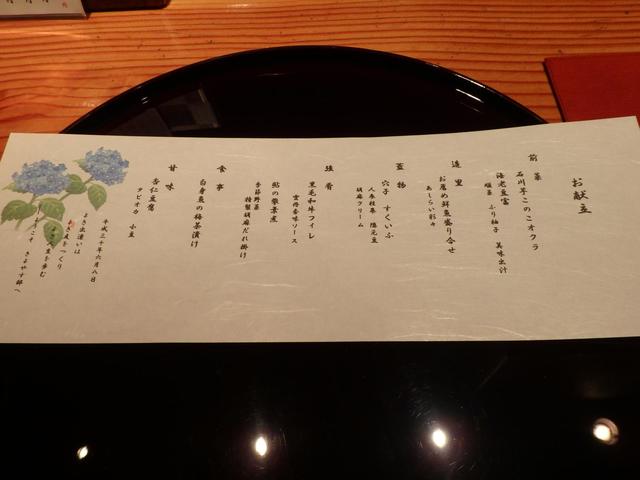 お献立
前菜
石川芋このこオクラ
海老豆富
順菜 ふり柚子 美味出汁
造里
お薦め鮮魚盛り合せ
あしらい彩々
蓋物
穴子 すくいふ
人参桂葉 隠元豆
胡麻クリーム
強肴
黒毛和牛フィレ
雲丹香味ソース
鮎の蓼葉煮
季節野菜
特製胡麻だれ掛け
食事
白身魚の梅茶漬け
甘味
杏仁豆腐
タピオカ 小豆
平成三十年六月八日
よき出逢いは
をつくり
人生を歩む